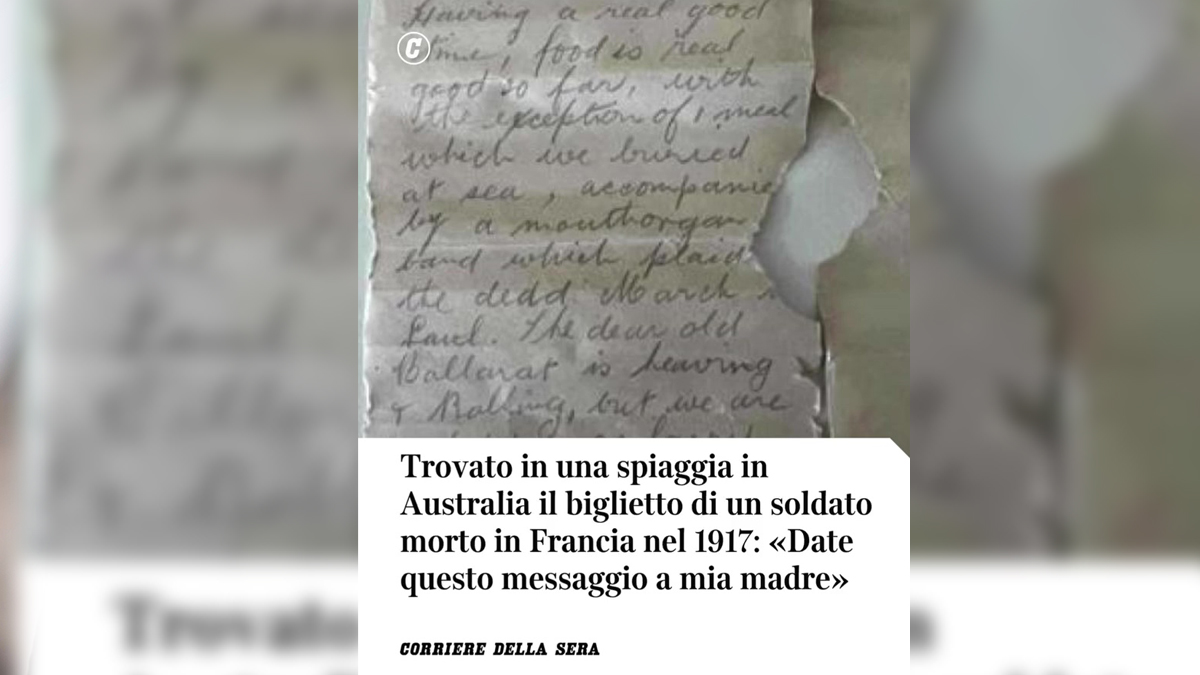 Having a real good
time, food is real
good so far, with
the exception of 1 meal
which we buried
at sea, accompanie
by a mouthorgan
band which plaid
the dedd March
Saul. The dear old
Ballarat is heaving
& Rolling, but we are
C
Trovato in una spiaggia in
Australia il biglietto di un soldato
morto in Francia nel 1917: «Date
questo messaggio a mia madre»
CORRIERE DELLA SERA